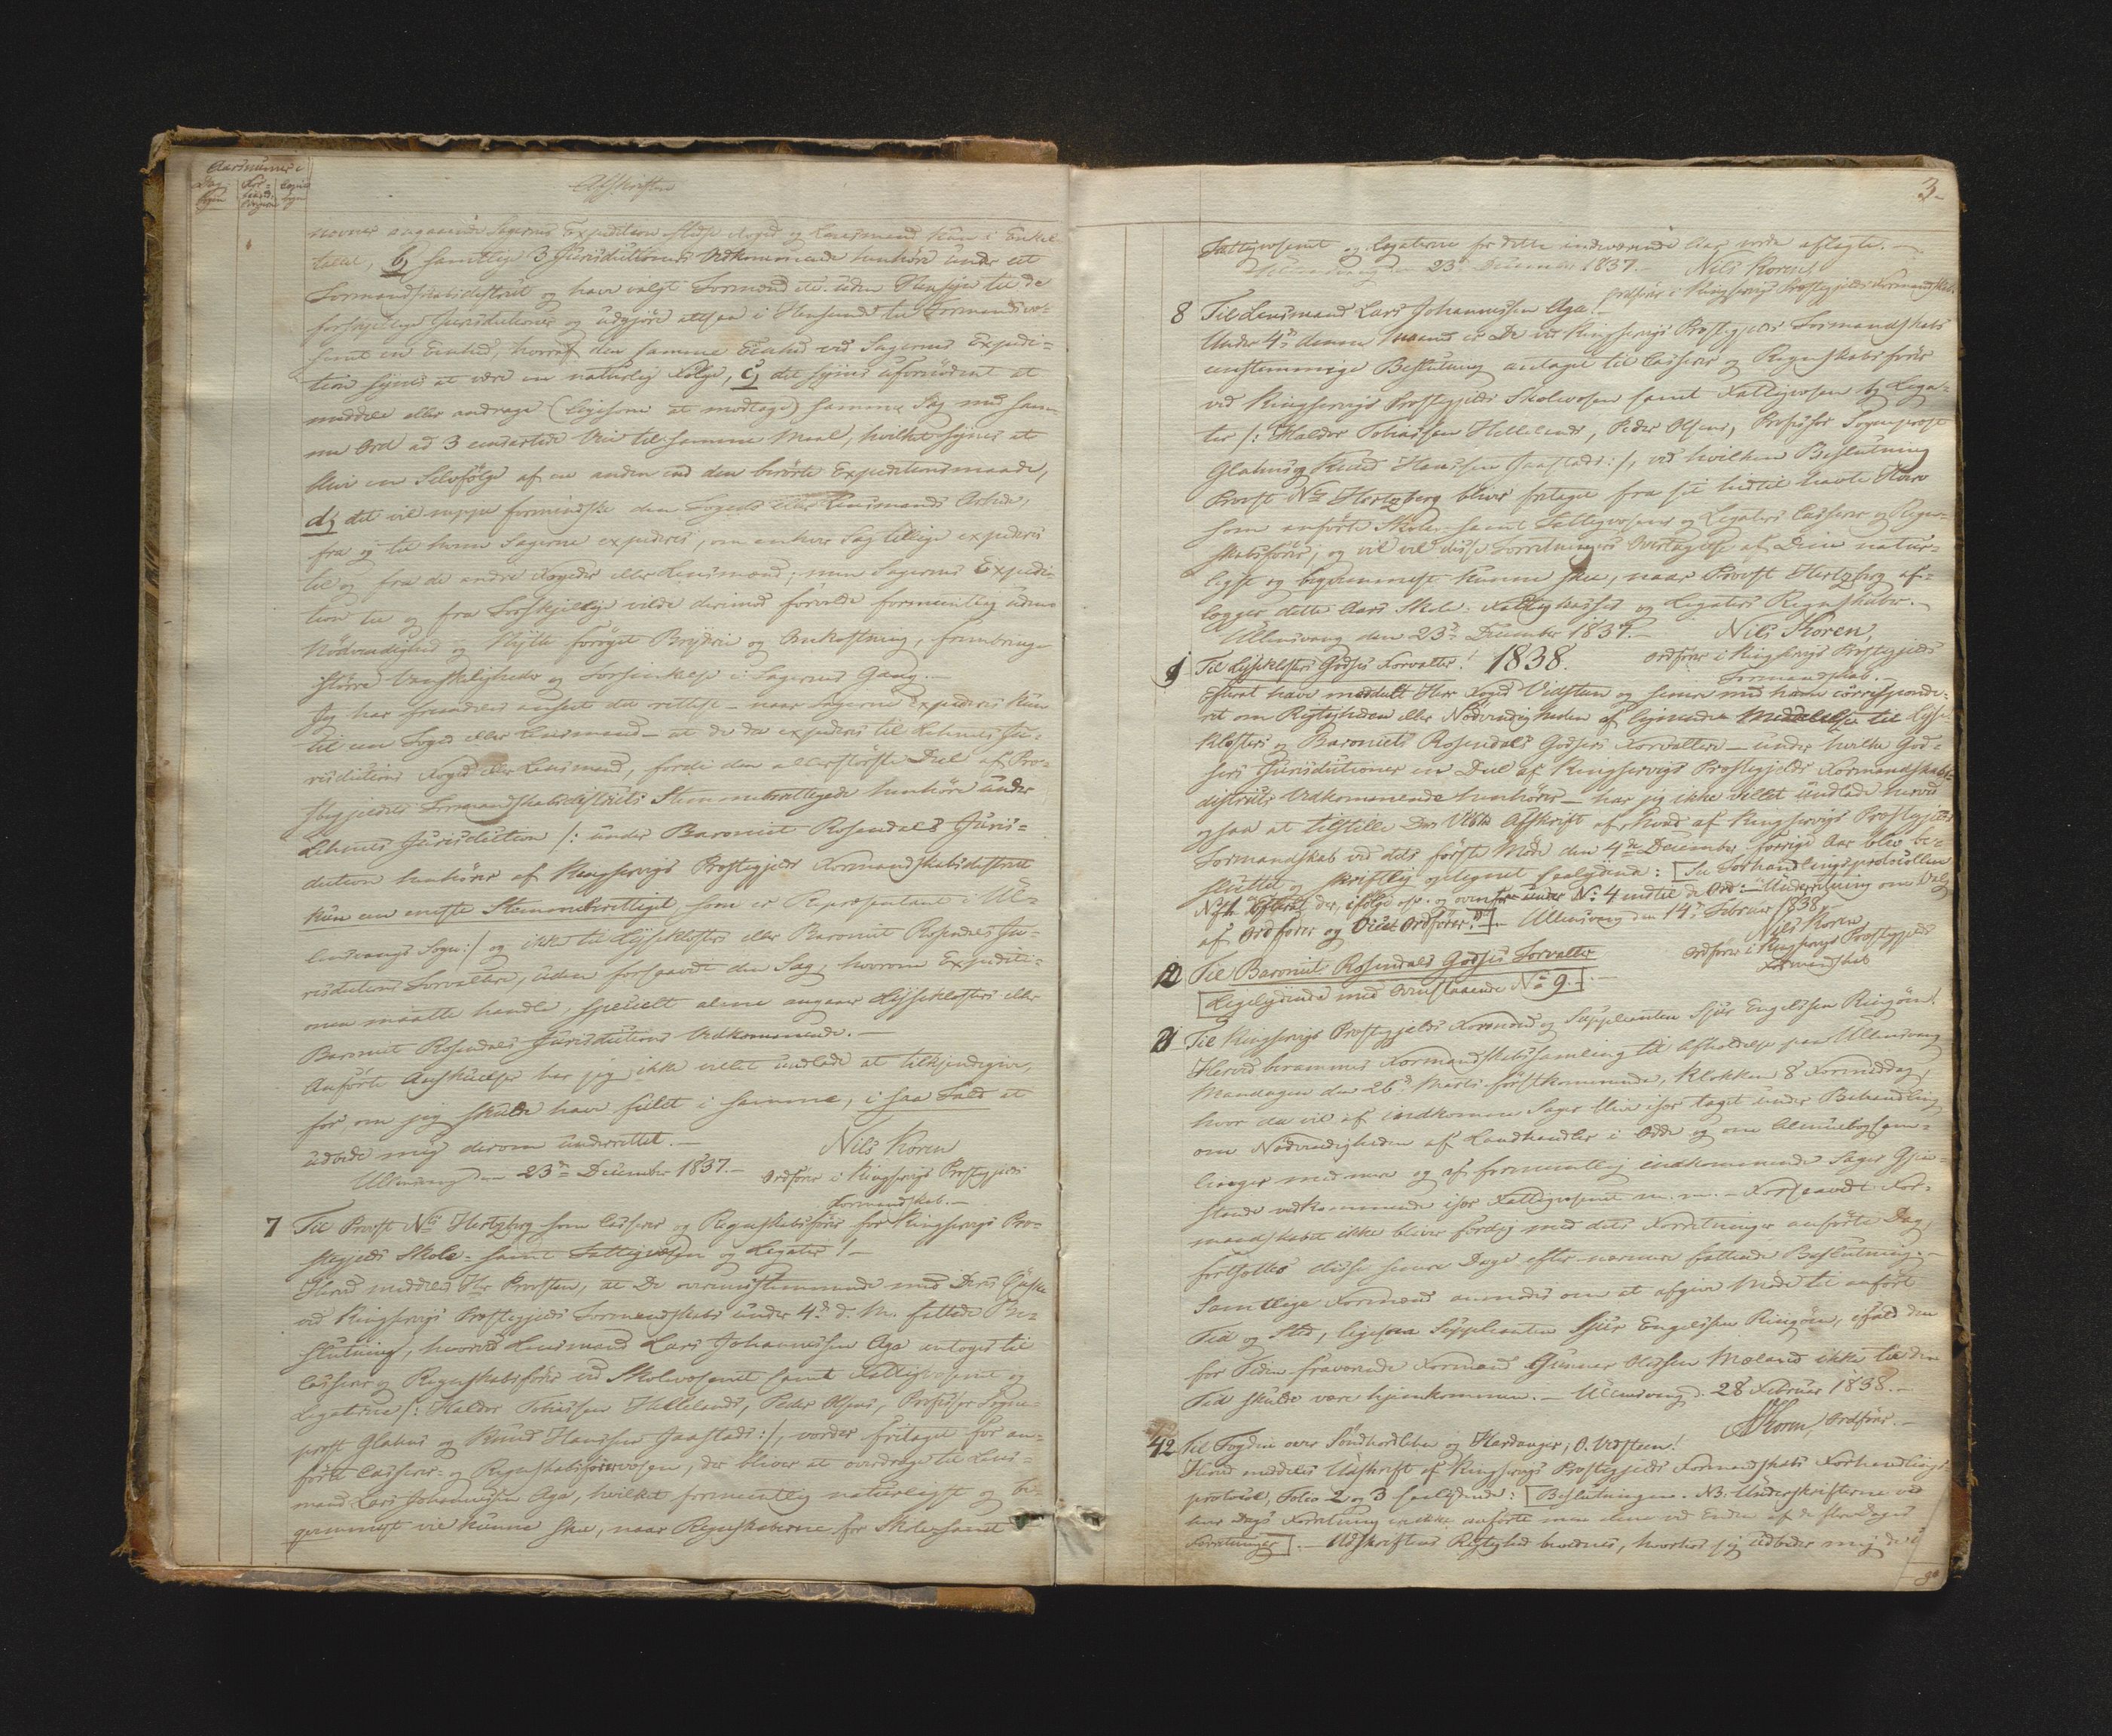 Aarsnumer i
Afskriften
nævner angaaende Sagernes Expedition tilsige Foged og Lensmand kun i Enkel-
tallet, b, samtlige 3 Jurisdictioners Vedkommende henhøre under eet
Formandskabsdistrict og have valgt Formænd etc. uden Hensyn til de
forskjellige Jurisdictioner og udgjöre altsaa i Henseende til Formandsvæ-
senet en Eenhed, hvoraf den samme Eenhed ved Sagernes Expedi-
tion synes at være en naturlig Følge, c, det synes ufornødent at
meddele eller andrage (ligesom at modtage) samme Sag med sam-
me Ord ad 3 eensartede Veie til samme Maal, hvilket synes at
blive en Selvfölge af en anden end den berörte Expeditionsmaade,
d, det vil neppe formindske den Fogeds eller Lensmands Arbeide,
fra og til hvem Sagerne expederes, om enhver Sag tillige expederes
til og fra de andre Fogeder eller Lensmænd; men Sagernes Expedi-
tion til og fra Forskjellige vilde derimod forvolde formeentlig uden
Nödvendighed og Nytte forøget Bryderi og Bekostning, frembringe
större Vanskeligheder og Forsinkelse i Sagernes Gang.—
Jeg har fremdeles anseet det rettest – naar Sagerne expederes kun
til een Foged eller Lensmand – at de da expederes til Lehnets Ju-
risdictions Foged eller Lensmand, fordi den allerstörste Deel af Præ-
stegjeldets Formandskabsdistricts Stemmeberettigede henhöre under
Lehnets Jurisdiction /: under Baroniet Rosendals Juris-
diction henhörer af Kingservigs Præstegjelds Formandskabsdistrict
kun een eneste Stemmeberettiget, som er Repræsentant i Ul-
lensvangs Sogn :/ og ikke til Lysseklosters eller Baroniet Rosendals Ju-
risdictions Forvaltere, uden forsaavidt den Sag, hvorom Expediti-
onen maatte handle, specielt alene angaaer Lysseklosters eller
Baroniet Rosendals Jurisdictions Vedkommende.—
Anförte Anskuelser har jeg ikke villet undlade at tilkjendegive,
for, om jeg skulde have feilet i samme, i saa Fald at
udbede mig derom underrettet.—
Ullensvang den 23de December 1837.— Nils Koren
Ordförer i Kingservigs Præstegjelds
Formandskab.—
7 Til Provst Ns Hertzberg som Casserer og Regnskabsförer for Kingservigs Præ-
stegjelds Skole- samt Fattigvæsen og Legater!—
Herved meddeles Hr Provsten, at De overeensstemmende med Deres Önske
ved Kingservigs Præstegjelds Formandskabs under 4de d. M. fattede Be-
slutning, hvorved Lensmand Lars Johannessen Aga antoges til
Casserer og Regnskabsförer ved Skolevæsenet samt Fattigvæsenet og
Legaterne /: Haldor Tobiassen Hellelands, Peder Olsens, Professor Sogne-
præst Glahns og Knud Hanssen Jaastads :/, vorder fritaget for an-
förte Casserer- og Regnskabsförervæsen, der bliver at overdrage til Lens-
mand Lars Johannessen Aga, hvilket formeentlig naturligst og be-
qvemmest vil kunne skee, naar Regnskaberne for Skole- samt
3
Fattigvæsenet og Legaterne for dette indeværende Aar vorde aflagte.—
Ullensvang den 23de December 1837.— Nils Koren,
Ordförer i Kingservigs Præstegjelds Formandskab.
8 Til Lensmand Lars Johannessen Aga!—
Under 4de denne Maaned er De ved Kingservigs Præstegjelds Formandskabs
eenstemmige Beslutning antaget til Casserer og Regnskabsförer
ved Kingservigs Præstegjelds Skolevæsen samt Fattigvæsen og Lega-
ter /: Haldor Tobiassen Hellelands, Peder Olsens, Professor Sognepræst
Glahns og Knud Hanssen Jaastads :/, ved hvilken Beslutning
Provst Ns Hertzberg bliver fritaget fra sit hidtil havte Hverv
som anförte Skole- samt Fattigvæsens og Legaters Casserer og Regn-
skabsförer; og vil vel disse Forretningers Overtagelse af Dem natur-
ligst og beqvemmest kunne skee, naar Provst Hertzberg af-
lægger dette Aars Skole- Fattigkasses og Legaters Regnskaber.—
Ullensvang den 23de December 1837.— Nils Koren,
Ordförer i Kingservigs Præstegjelds
Formandskab.—
9 Til Lysseklosters Godses Forvalter! 1838.
Efterat have meddelt Herr Foged Vidsteen og senere med ham corresponde-
ret om Rigtigheden eller Nödvendigheden af lignende Meddelelse til Lysse-
klosters og Baroniets Rosendals Godsers Forvaltere – under hvilke God-
sers Jurisdictioner en Deel af Kingservigs Præstegjelds Formandskabs-
districts Vedkommende henhörer – har jeg ikke villet undlade herved
ogsaa at tilstille Dem Afskrift af, hvad af Kingservigs Præstegjelds
Formandskab ved dets förste Möde den 4de December forrige Aar blev be-
sluttet og skriftlig optegnet saalydende: [See Forhandlingsprotocollen
under No 4 indtil de Ord: "Underretning om Valg
af Ordförer og Viceordförer".]— Ullensvang den 14de Februar 1838
Nils Koren
Ordförer i Kingservigs Præstegjelds
Formandskab
10 Til Baroniet Rosendals Godses Forvalter
[Ligelydende med Ovenstaaende No 9.]—
Til Kingservigs Præstegjelds Formænd og Suppleanten Sjur Engelssen Ringöen!
Herved berammes Formandskabssamling til Afholdelse paa Ullensvang
Mandagen den 26de Marts förstkommende, Klokken 8 Formiddag,
hvor da vil af indkomne Sager blive især taget under Behandling
om Nödvendigheden af Landhandler i Odde og om Almuebogsam-
linger med mere og af formeentlig indkommende Sager Gjen-
stande vedkommende især Fattigvæsenet m. m.— Forsaavidt For-
mandskabet ikke bliver færdig med dets Forretninger anförte Dag,
fortsættes disse senere Dage efter nærmere fattende Beslutning.—
Samtlige Formænd anmodes om at afgive Möde til anfört
Tid og Sted, ligesom Suppleanten Sjur Engelssen Ringöen, ifald den
for Tiden fraværende Formand Gunnar Olsen Mæland ikke til den
Tid skulde være hjemkommen.— Ullensvang d. 28 Februar 1838.—
NKoren, Ordförer.—
42 Til Fogden over Söndhordlehn og Hardanger, O. Vidsteen!
Herved meddeles Udskrift af Kingservigs Præstegjelds Formandskabs Forhandlings-
protocol, Folio 2 og 3 saalydende: [Beslutningen. NB. Underskrifterne ved
hver Dags Forretning ere ikke anförte men alene ved Enden af de flere Dages
Forretninger].— Udskriftens Rigtighed bevidnes, hvorhos jeg udbeder mig de i